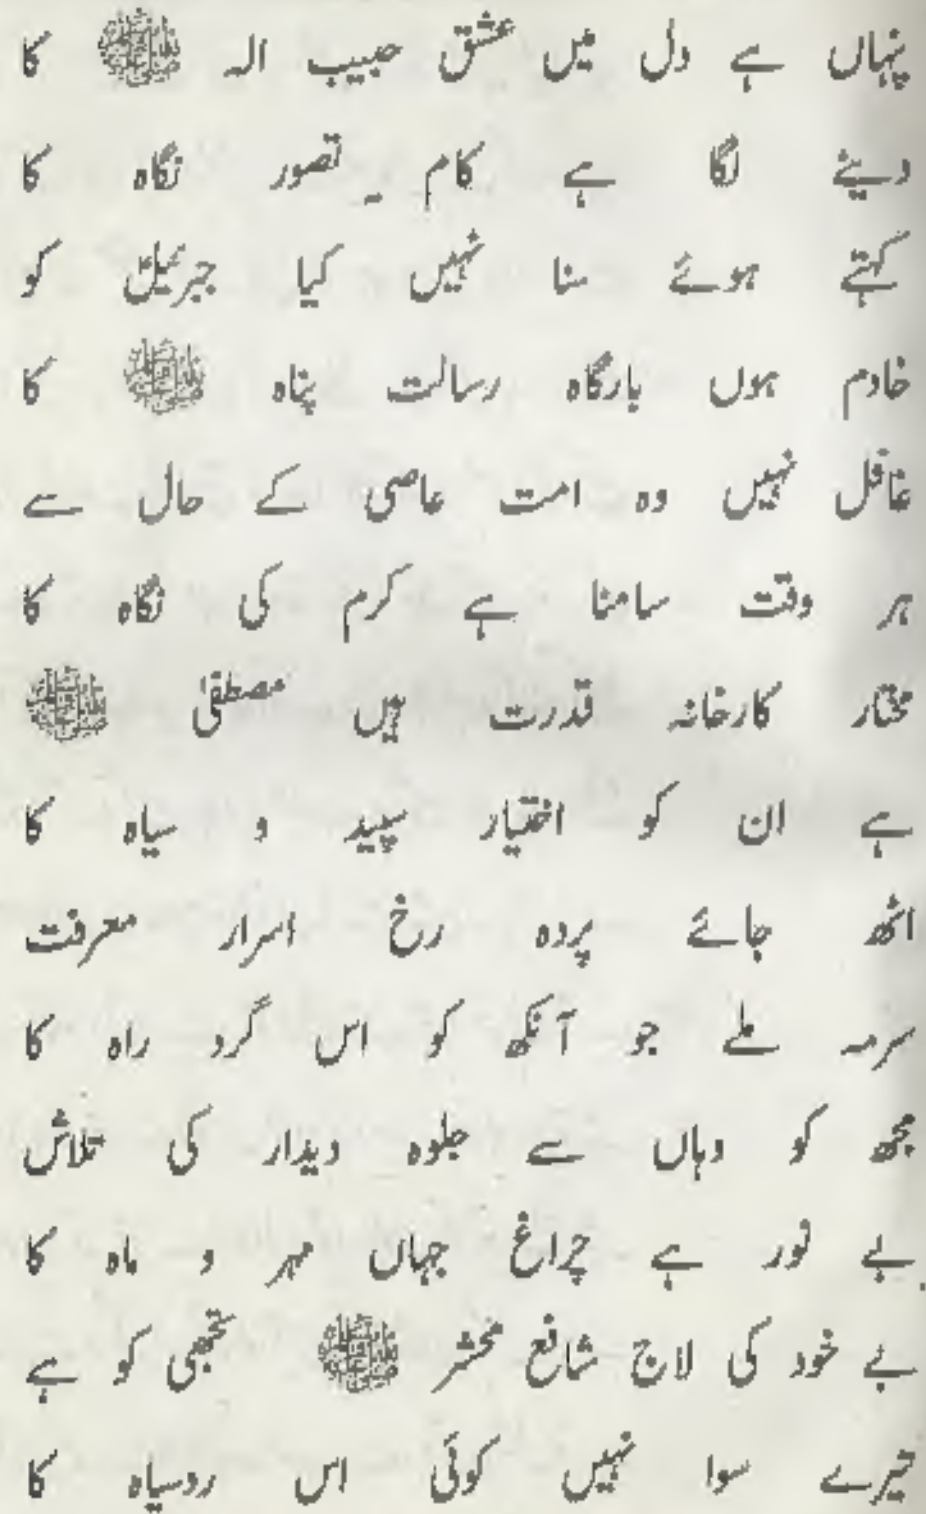 پنہاں ہے دل میں عشق حبیب الہ ﷺ کا
دینے لگا ہے کام یہ تصور نگاہ کا
کہتے ہوئے سنا نہیں کیا جبرئیلؑ کو
خادم ہوں بارگاہ رسالت پناہ ﷺ کا
غافل نہیں وہ امت عاصی کے حال سے
ہر وقت سامنا ہے کرم کی نگاہ کا
مختار کارخانہ قدرت ہیں مصطفیٰ ﷺ
ہے ان کو اختیار سپید و سیاہ کا
اٹھ جائے پردہ رخ اسرار معرفت
سرمہ ملے جو آنکھ کو اس گرد راہ کا
مجھ کو وہاں سے جلوہ دیدار کی تلاش
بے نور ہے چراغ جہاں مہر و ماہ کا
بے خود کی لاج شافع محشر ﷺ تجھی کو ہے
تیرے سوا نہیں کوئی اس روسیاہ کا